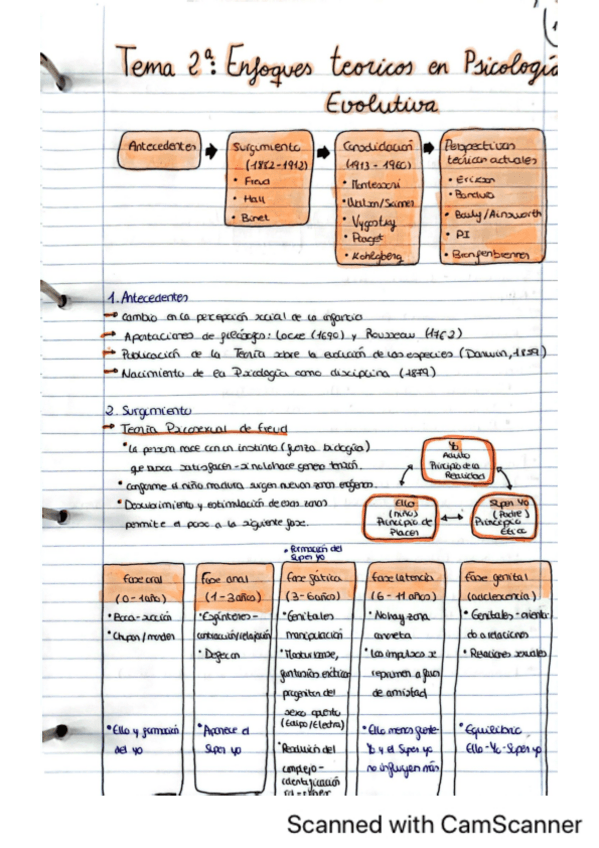 Tema 2ª: Enfoques teoricos en Psicología
Evolutiva
Antecedentes
Surgimiento
(1882-1912)
• Freud
• Hall
• Binet
Consolidación
(1913 - 1960)
• Montessori
• Vygostky
• Piaget
• Kohlgberg
Perspectivas
teóricas actuales
• Erikson
• Bandura
• Bowlby/Ainsworth
• PI
• Bronfenbrenner
1. Antecedentes
→ Cambio en la percepción social de la infancia
→ Aportaciones de filósofos: Locke (1690) y Rousseau (1762)
→ Publicación de la Teoría sobre la evolución de las especies (Darwin, 1859)
→ Nacimiento de la Psicología como disciplina (1879)
2. Surgimiento
→ Teoría Psicosexual de Freud
• La persona nace con un instinto (fuerza biológica)
que busca satisfacción - si no lo hace genera tensión.
• Conforme el niño madura surgen nuevas zonas erógenas.
• Descubrimiento y estimulación de esas zonas
permite el paso a la siguiente fase.
Yo
Adulto
Principio de la
Realidad
Ello
(niño)
Principio de
Placer
Super Yo
(Padre)
Principio
Ética
• Formación del
super yo
Fase oral
(0 - 1año)
• Boca - succión
• Chupar / morder
• Ello y formación
del yo
Fase anal
(1 - 3 años)
• Esfínteres -
contracción/relajación
• Defecar
• Aparece el
Super yo
Fase fálica
(3 - 6 años)
• Genitales
manipulación
• Masturbarse,
fantasías eróticas
progenitor del
sexo opuesto
(Edipo/Electra)
• Resolución del
complejo -
identificación
Fase latencia
(6 - 11 años)
• No hay zona
concreta
• Los impulsos se
reprimen a favor
de amistad
• Ello menos fuerte-
Yo y el Super yo
no influyen más
Fase genital
(adolescencia)
• Genitales - orienta
do a relaciones
• Relaciones sexuales
• Equilibrio
Ello - Yo - Super yo
Scanned with CamScanner